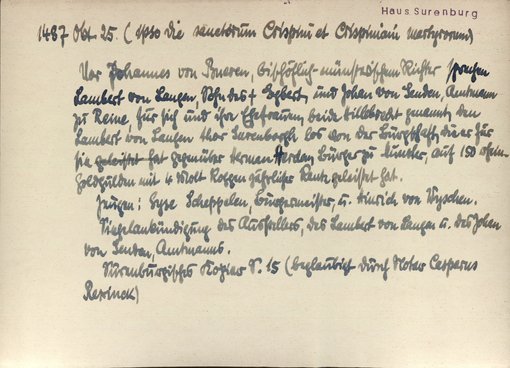 Haus Surenburg
1487 Okt. 25. (ipso die sanctorum Crispini et Crispiniani martyrorum)
Vor Johannes von Bueren, bischöflich-münsterischem Richter sprechen
Lambert von Langen, Sohn des † Egbert, und Johan von Senden, Amtmann
zu Reine, für sich und ihre Ehefrauen, beide Hillebrecht genannt, den
Lambert von Langen thor Surenborgh los von der Bürgschaft, die er für
sie geleistet hat gegenüber Herman Herden, Bürger zu Münster, auf 150 rhein.
Goldgulden mit 4 Molt Roggen jährlicher Rente geleistet hat.
Zeugen: Eyse Scheppelen, Bürgermeister, u. Hinrich von
Siegelankündigung des Ausstellers, des Lambert von Langen u. des Johan
von Senden, Amtmanns.
Surenburgisches Kopiar S. 15 (beglaubigt durch Notar Casparus
)